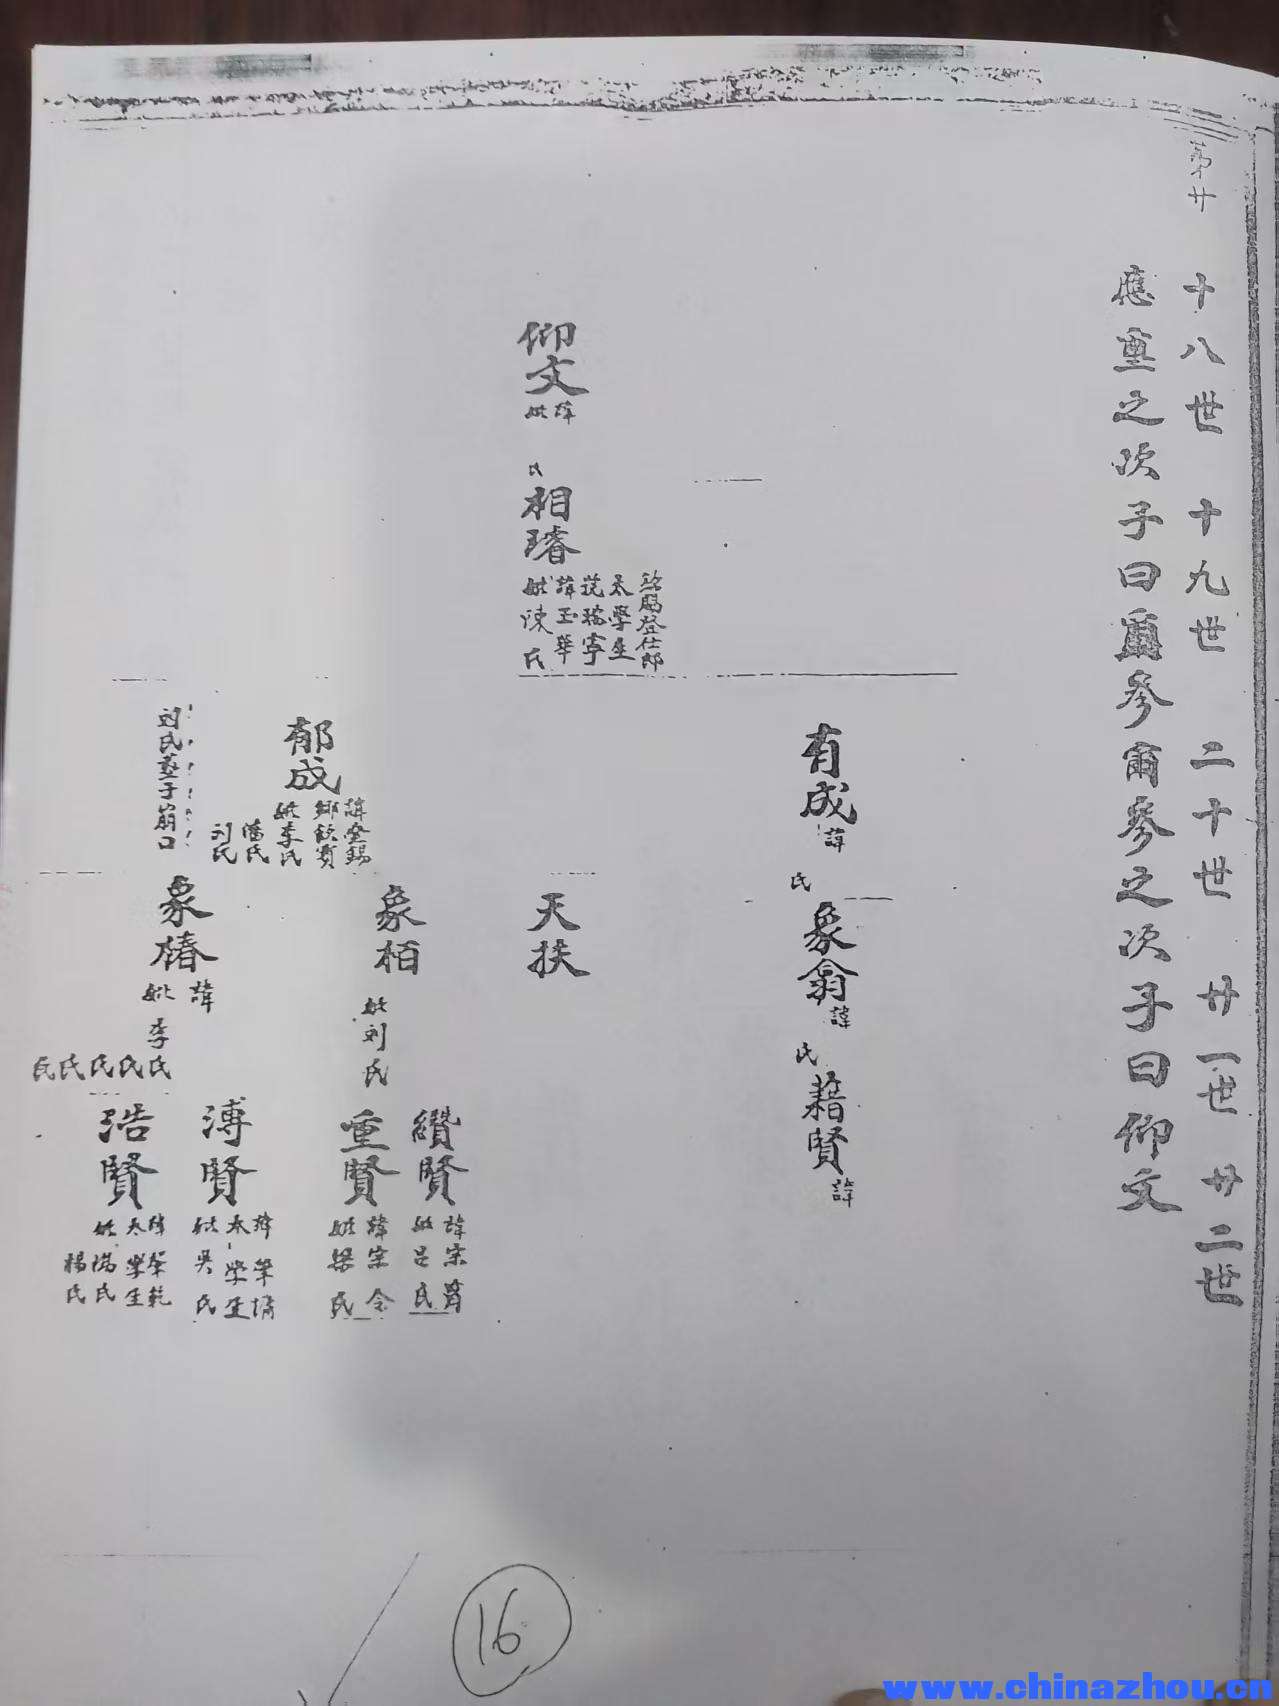 第廿
十八世 十九世 二十世 廿一世 廿二世
應重之次子曰爾參爾參之次子曰仰文
仰文
諱
妣 氏
相璿
欽賜登仕郎
太學生
諱玉華
妣陳氏
有成
諱
氏
象翁
諱
氏
藉賢
諱
郁成
諱登錫
鄉飲賓
妣李氏
潘氏
刘氏
刘氏塟于崩口
天扶
象栢
妣刘氏
纘賢
諱宗
妣呂氏
重賢
諱宗令
妣梁氏
象椿
諱
妣李氏
氏
氏
氏
氏
溥賢
諱肇
太學生
妣吳氏
浩賢
諱肇乾
太學生
妣馮氏
楊氏
16
www.chinazhou.cn